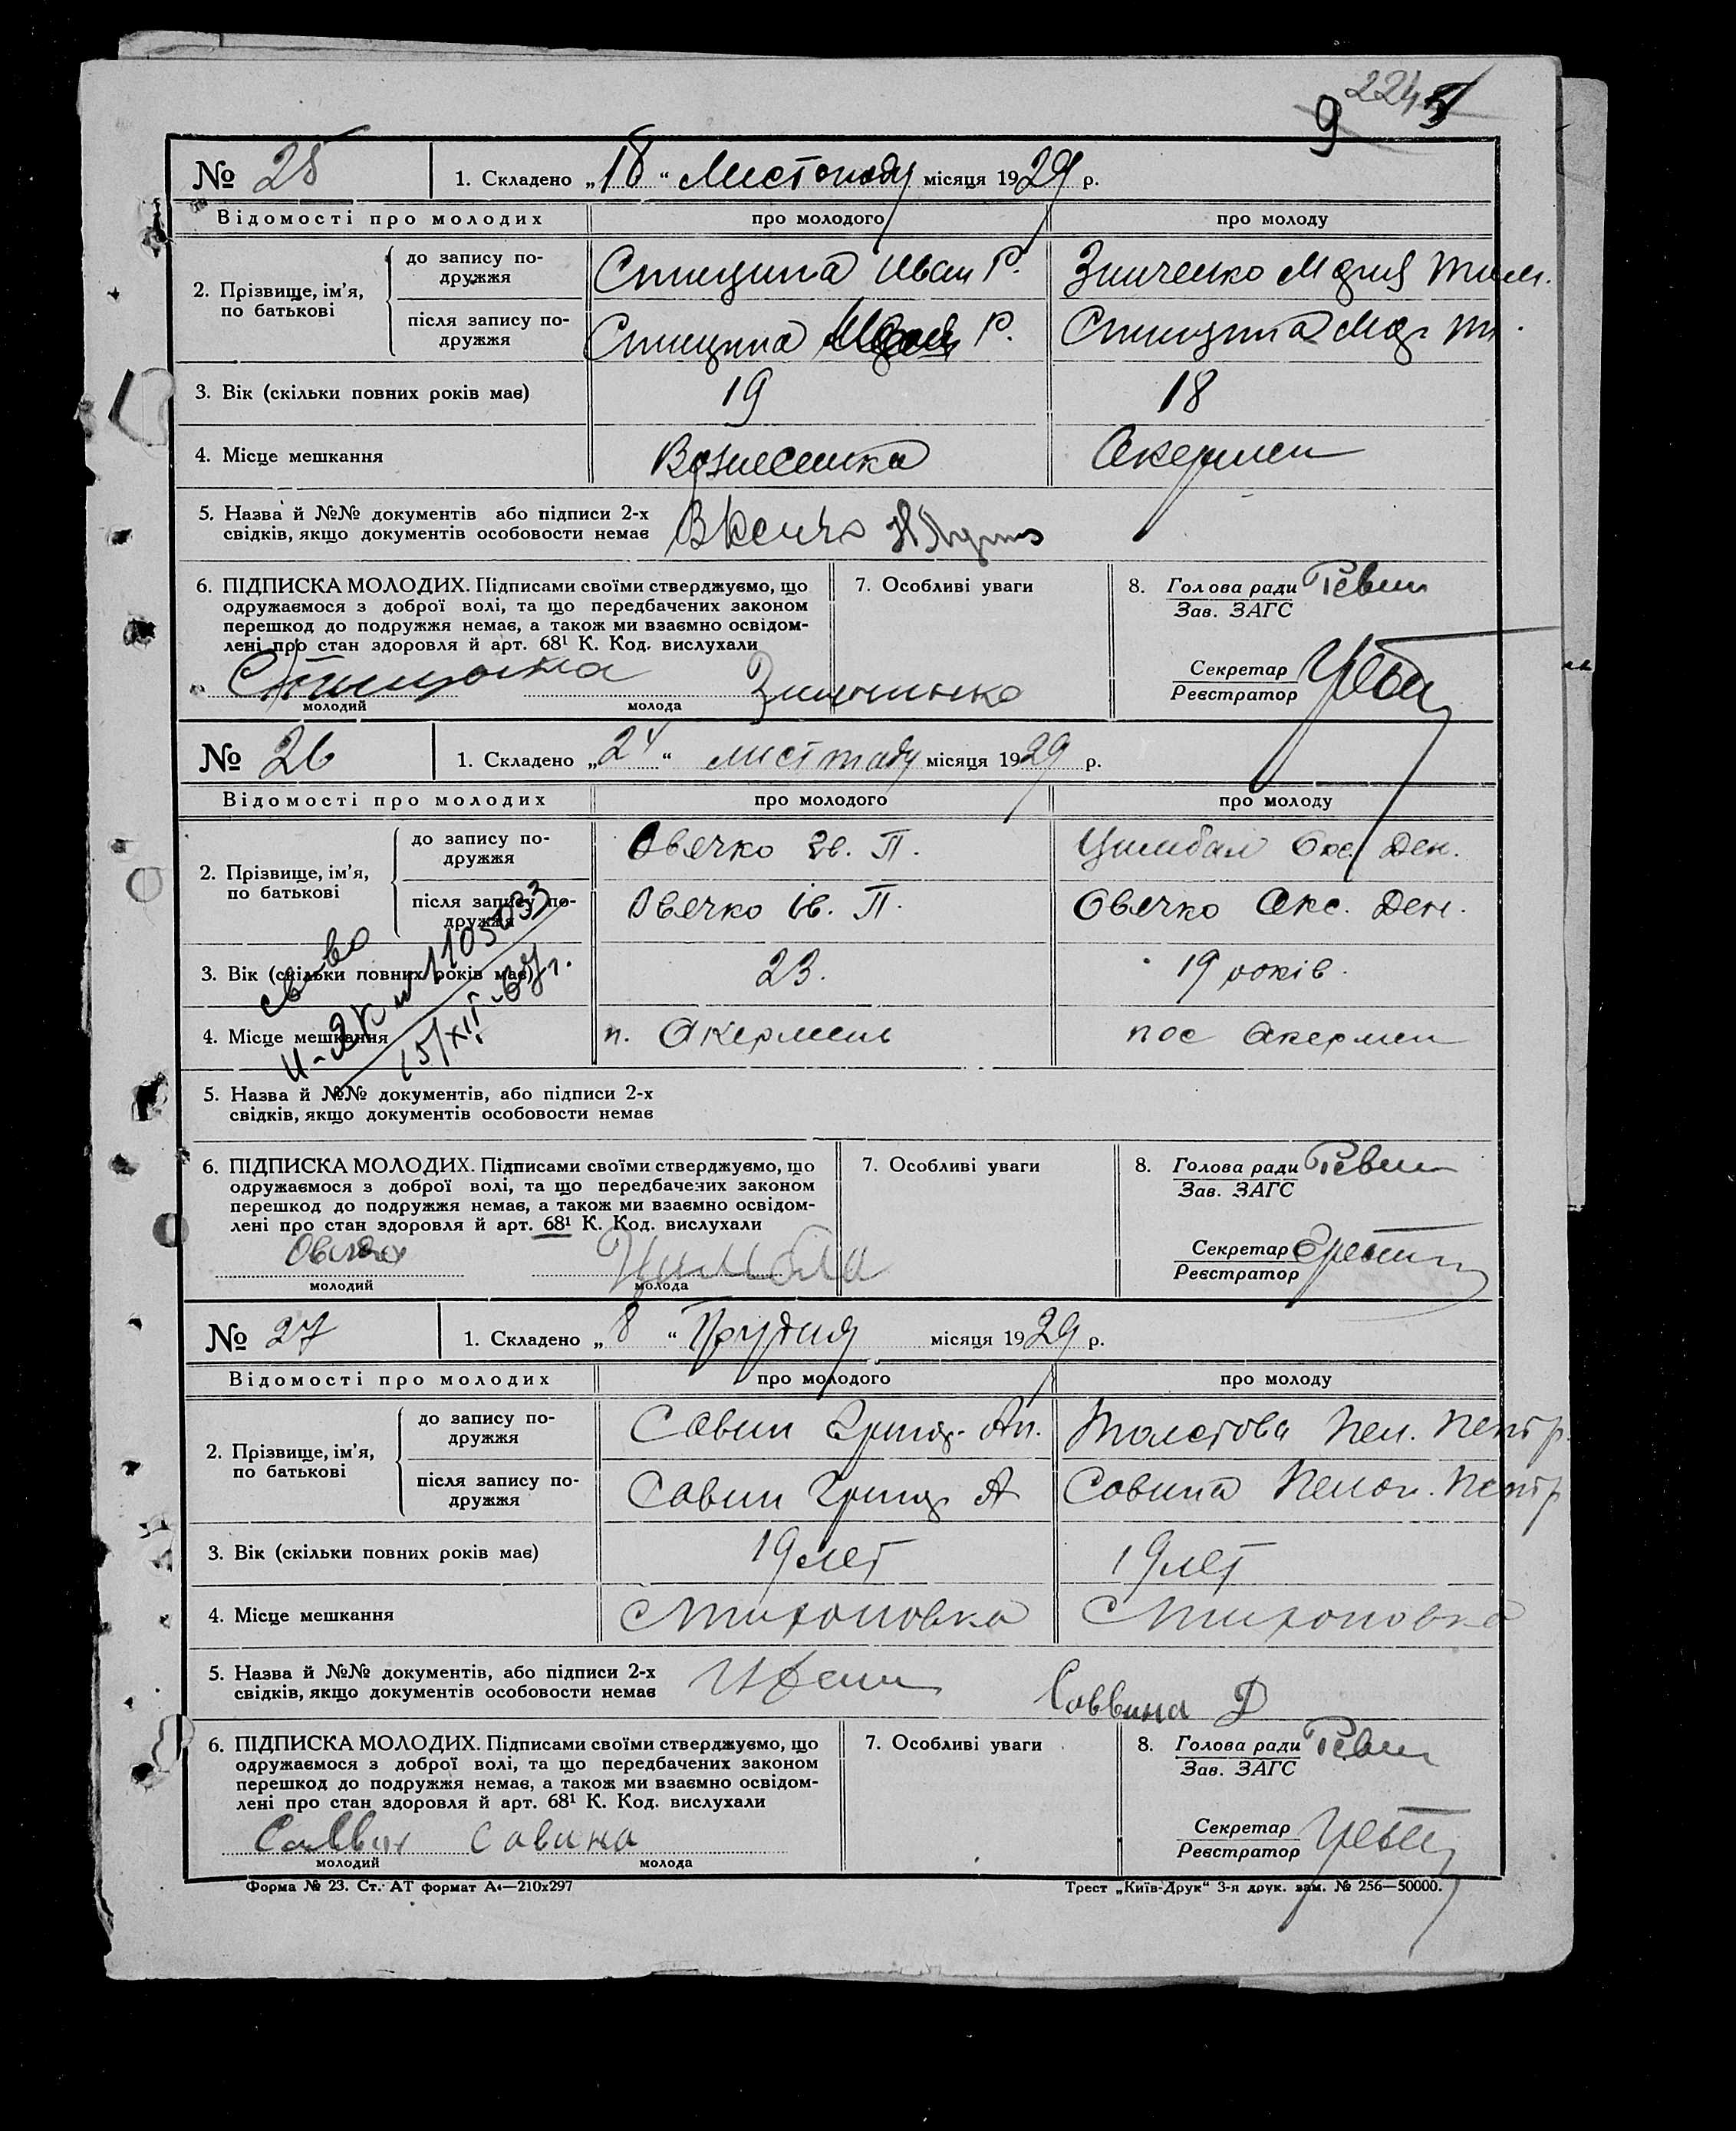 9 224
№ 25 1. Складено „18“ Листопаду місяця 1929 р.
Відомості про молодих про молодого про молоду
2. Прізвище, ім’я, по батькові
до запису по-
дружжя
Спицина Иван Р. Зинченко Мария Тим.
після запису по-
дружжя
Спицина Иван Р. Спицина Мар. Ти.
3. Вік (скільки повних років має) 19 18
4. Місце мешкання Вознесенка Акермен
5. Назва й №№ документів або підписи 2-х
свідків, якщо документів особовости немає
6. ПІДПИСКА МОЛОДИХ. Підписами своїми стверджуємо, що
одружаємося з доброї волі, та що передбачених законом
перешкод до подружжя немає, а також ми взаємно освідом-
лені про стан здоровля й арт. 68¹ К. Код. вислухали
молодий молода Зинченко
7. Особливі уваги
8. Голова ради
Зав. ЗАГС
Секретар
Реєстратор
№ 26 1. Складено „24“ листопаду місяця 1929 р.
Відомості про молодих про молодого про молоду
2. Прізвище, ім’я,
по батькові
до запису по-
дружжя
Овечко Ів. П. Цимбал Окс. Ден.
після запису по-
дружжя
Овечко Ів. П. Овечко Окс. Ден.
3. Вік (скільки повних років має) 23. 19 років.
4. Місце мешкання п. Акермень пос Акермен
св-во
1105033
15/XII-67г.
5. Назва й №№ документів, або підписи 2-х
свідків, якщо документів особовости немає
6. ПІДПИСКА МОЛОДИХ. Підписами своїми стверджуємо, що
одружаємося з доброї волі, та що передбачених законом
перешкод до подружжя немає, а також ми взаємно освідом-
лені про стан здоровля й арт. 68¹ К. Код. вислухали
молодий молода
7. Особливі уваги
8. Голова ради
Зав. ЗАГС
Секретар
Реєстратор
№ 27 1. Складено „8“ Грудня місяця 1929 р.
Відомості про молодих про молодого про молоду
2. Прізвище, ім’я,
по батькові
до запису по-
дружжя
Савин Григор. Ан. Толстова Пел. Петр.
після запису по-
дружжя
Савин Григор А Савина Пелаг. Петр
3. Вік (скільки повних років має) 19 лет 19 лет
4. Місце мешкання Мироновка Мироновка
5. Назва й №№ документів, або підписи 2-х
свідків, якщо документів особовости немає
Соввина Д
6. ПІДПИСКА МОЛОДИХ. Підписами своїми стверджуємо, що
одружаємося з доброї волі, та що передбачених законом
перешкод до подружжя немає, а також ми взаємно освідом-
лені про стан здоровля й арт. 68¹ К. Код. вислухали
Саввин Савина
молодий молода
7. Особливі уваги
8. Голова ради
Зав. ЗАГС
Секретар
Реєстратор
Форма № 23. Ст. АТ формат А₄—210х297 Трест „Київ-Друк“ 3-я друк. зам. № 256—50000.